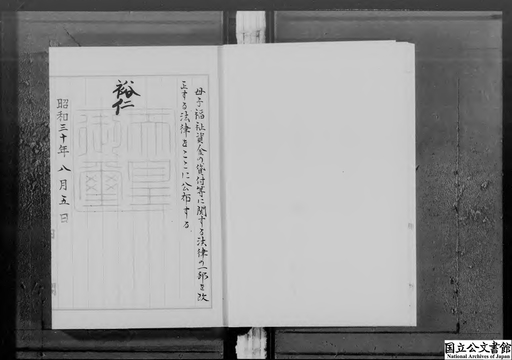 母子福祉資金の貸付等に関する法律の一部を改
正する法律をここに公布する
裕仁
天皇
御璽
昭和三十年八月五日
国立公文書館
National Archives of Japan